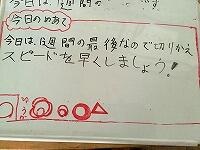 今日は、1週間の
今日のめあて
今日は、1週間の最後なので切りかえ
スピードを早くしましょう!